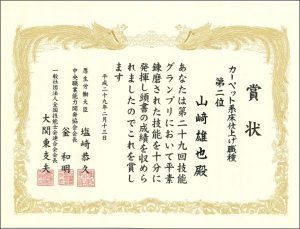 賞状
カーペット系床仕上げ職種
第二位
山崎雄也殿
あなたは第二十九回技能
グランプリにおいて平素
錬磨された技能を十分に
発揮し頭書の成績を収めら
れましたのでこれを賞し
ます
平成二十九年二月十三日
厚生労働大臣
塩崎恭久
中央職業能力開発協会会長
釡和明
一般社団法人全国技能士会連合会会長
大関東支夫